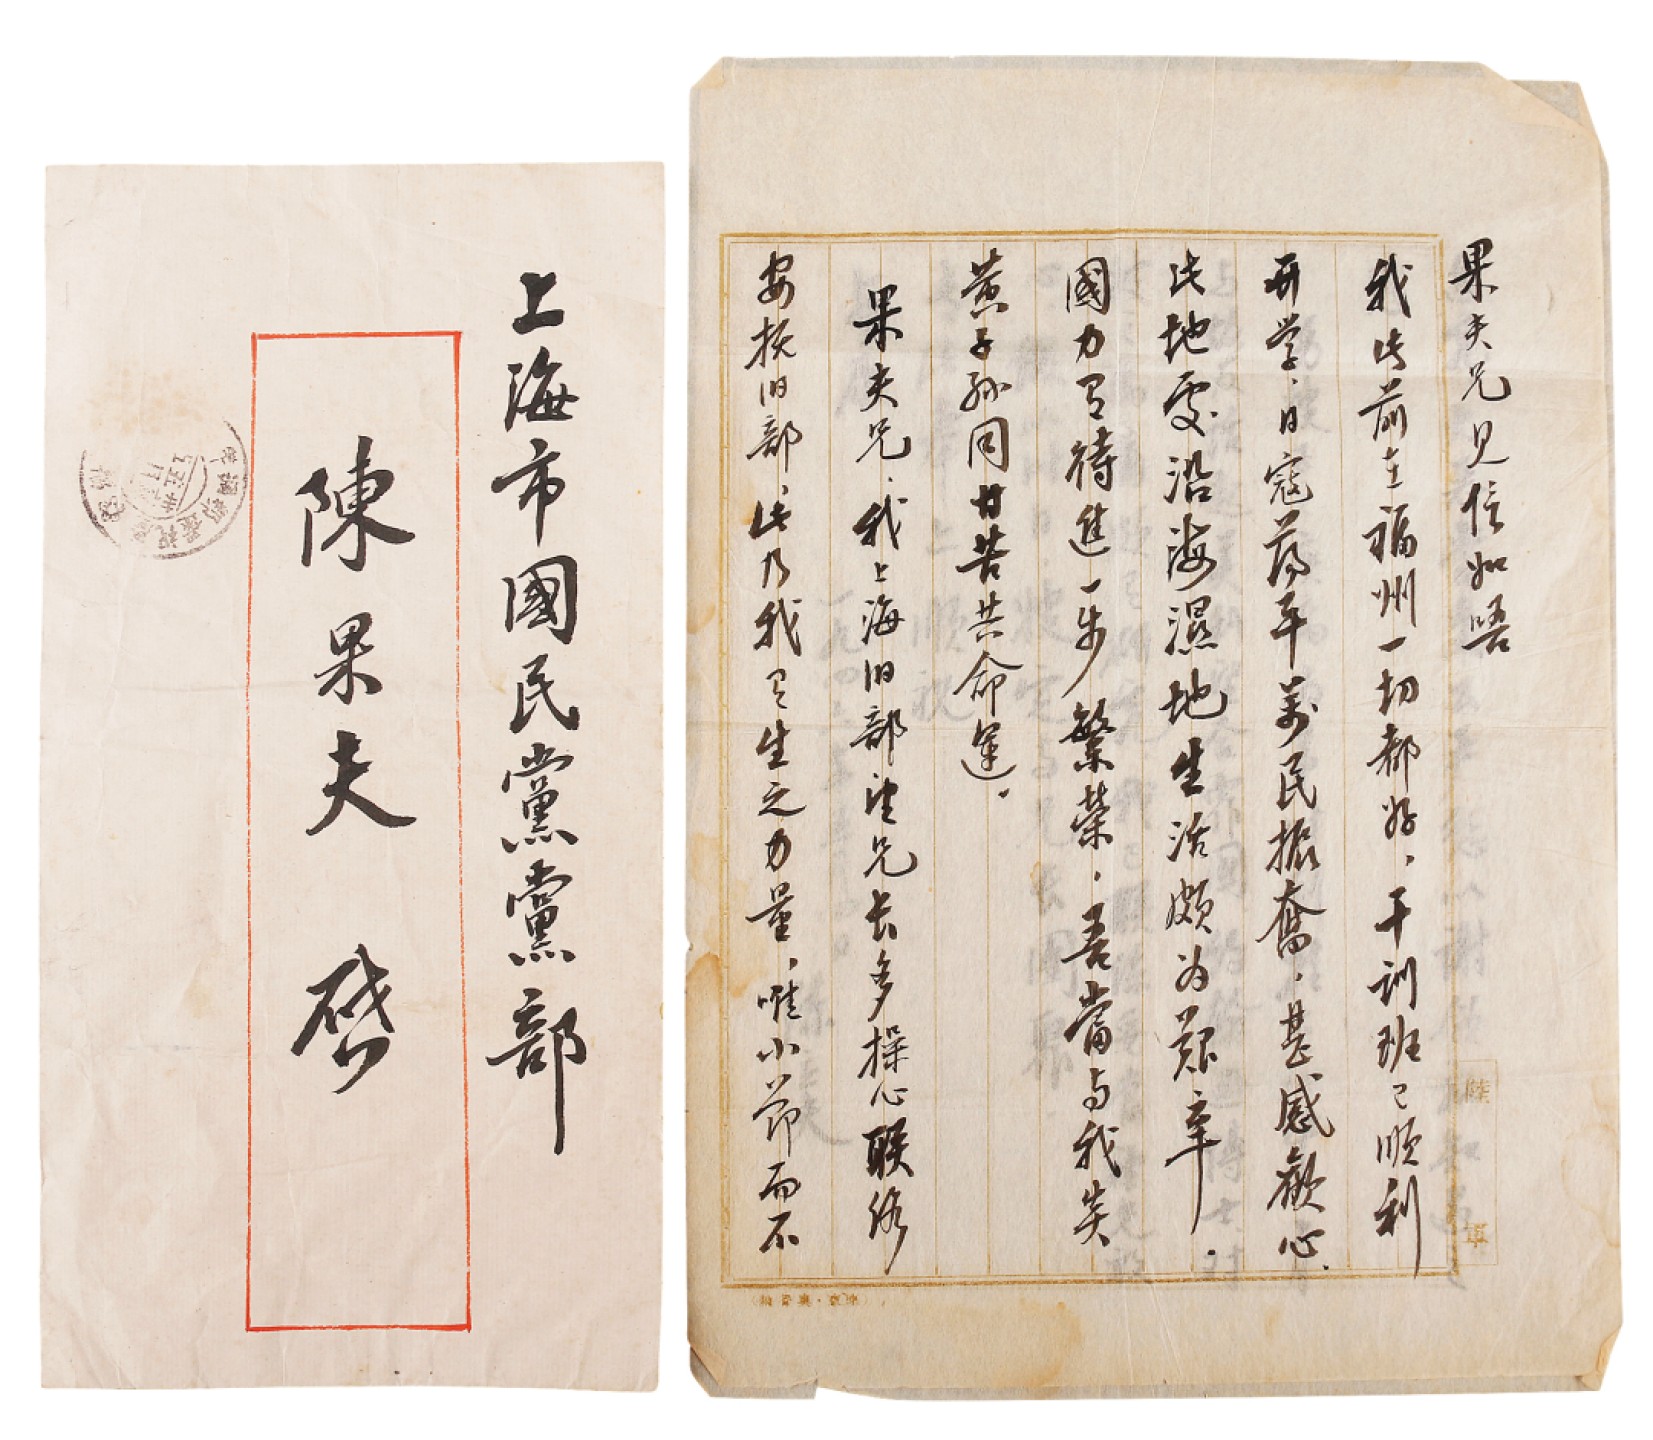 上海市國民黨黨部
陳果夫 啓
果夫兄見信如唔
我此前在福州一切都好，干训班已順利
开学，日寇荡平万民振奋，甚感歡心，
此地處沿海濕地生活頗为艰辛．
國力有待進一步繁榮．吾當与我炎
黄子孫同甘苦共命運．
果夫兄，我上海旧部望兄长多操心联络
安抚旧部，此乃我有生之力量，唯小节而不
陸
軍